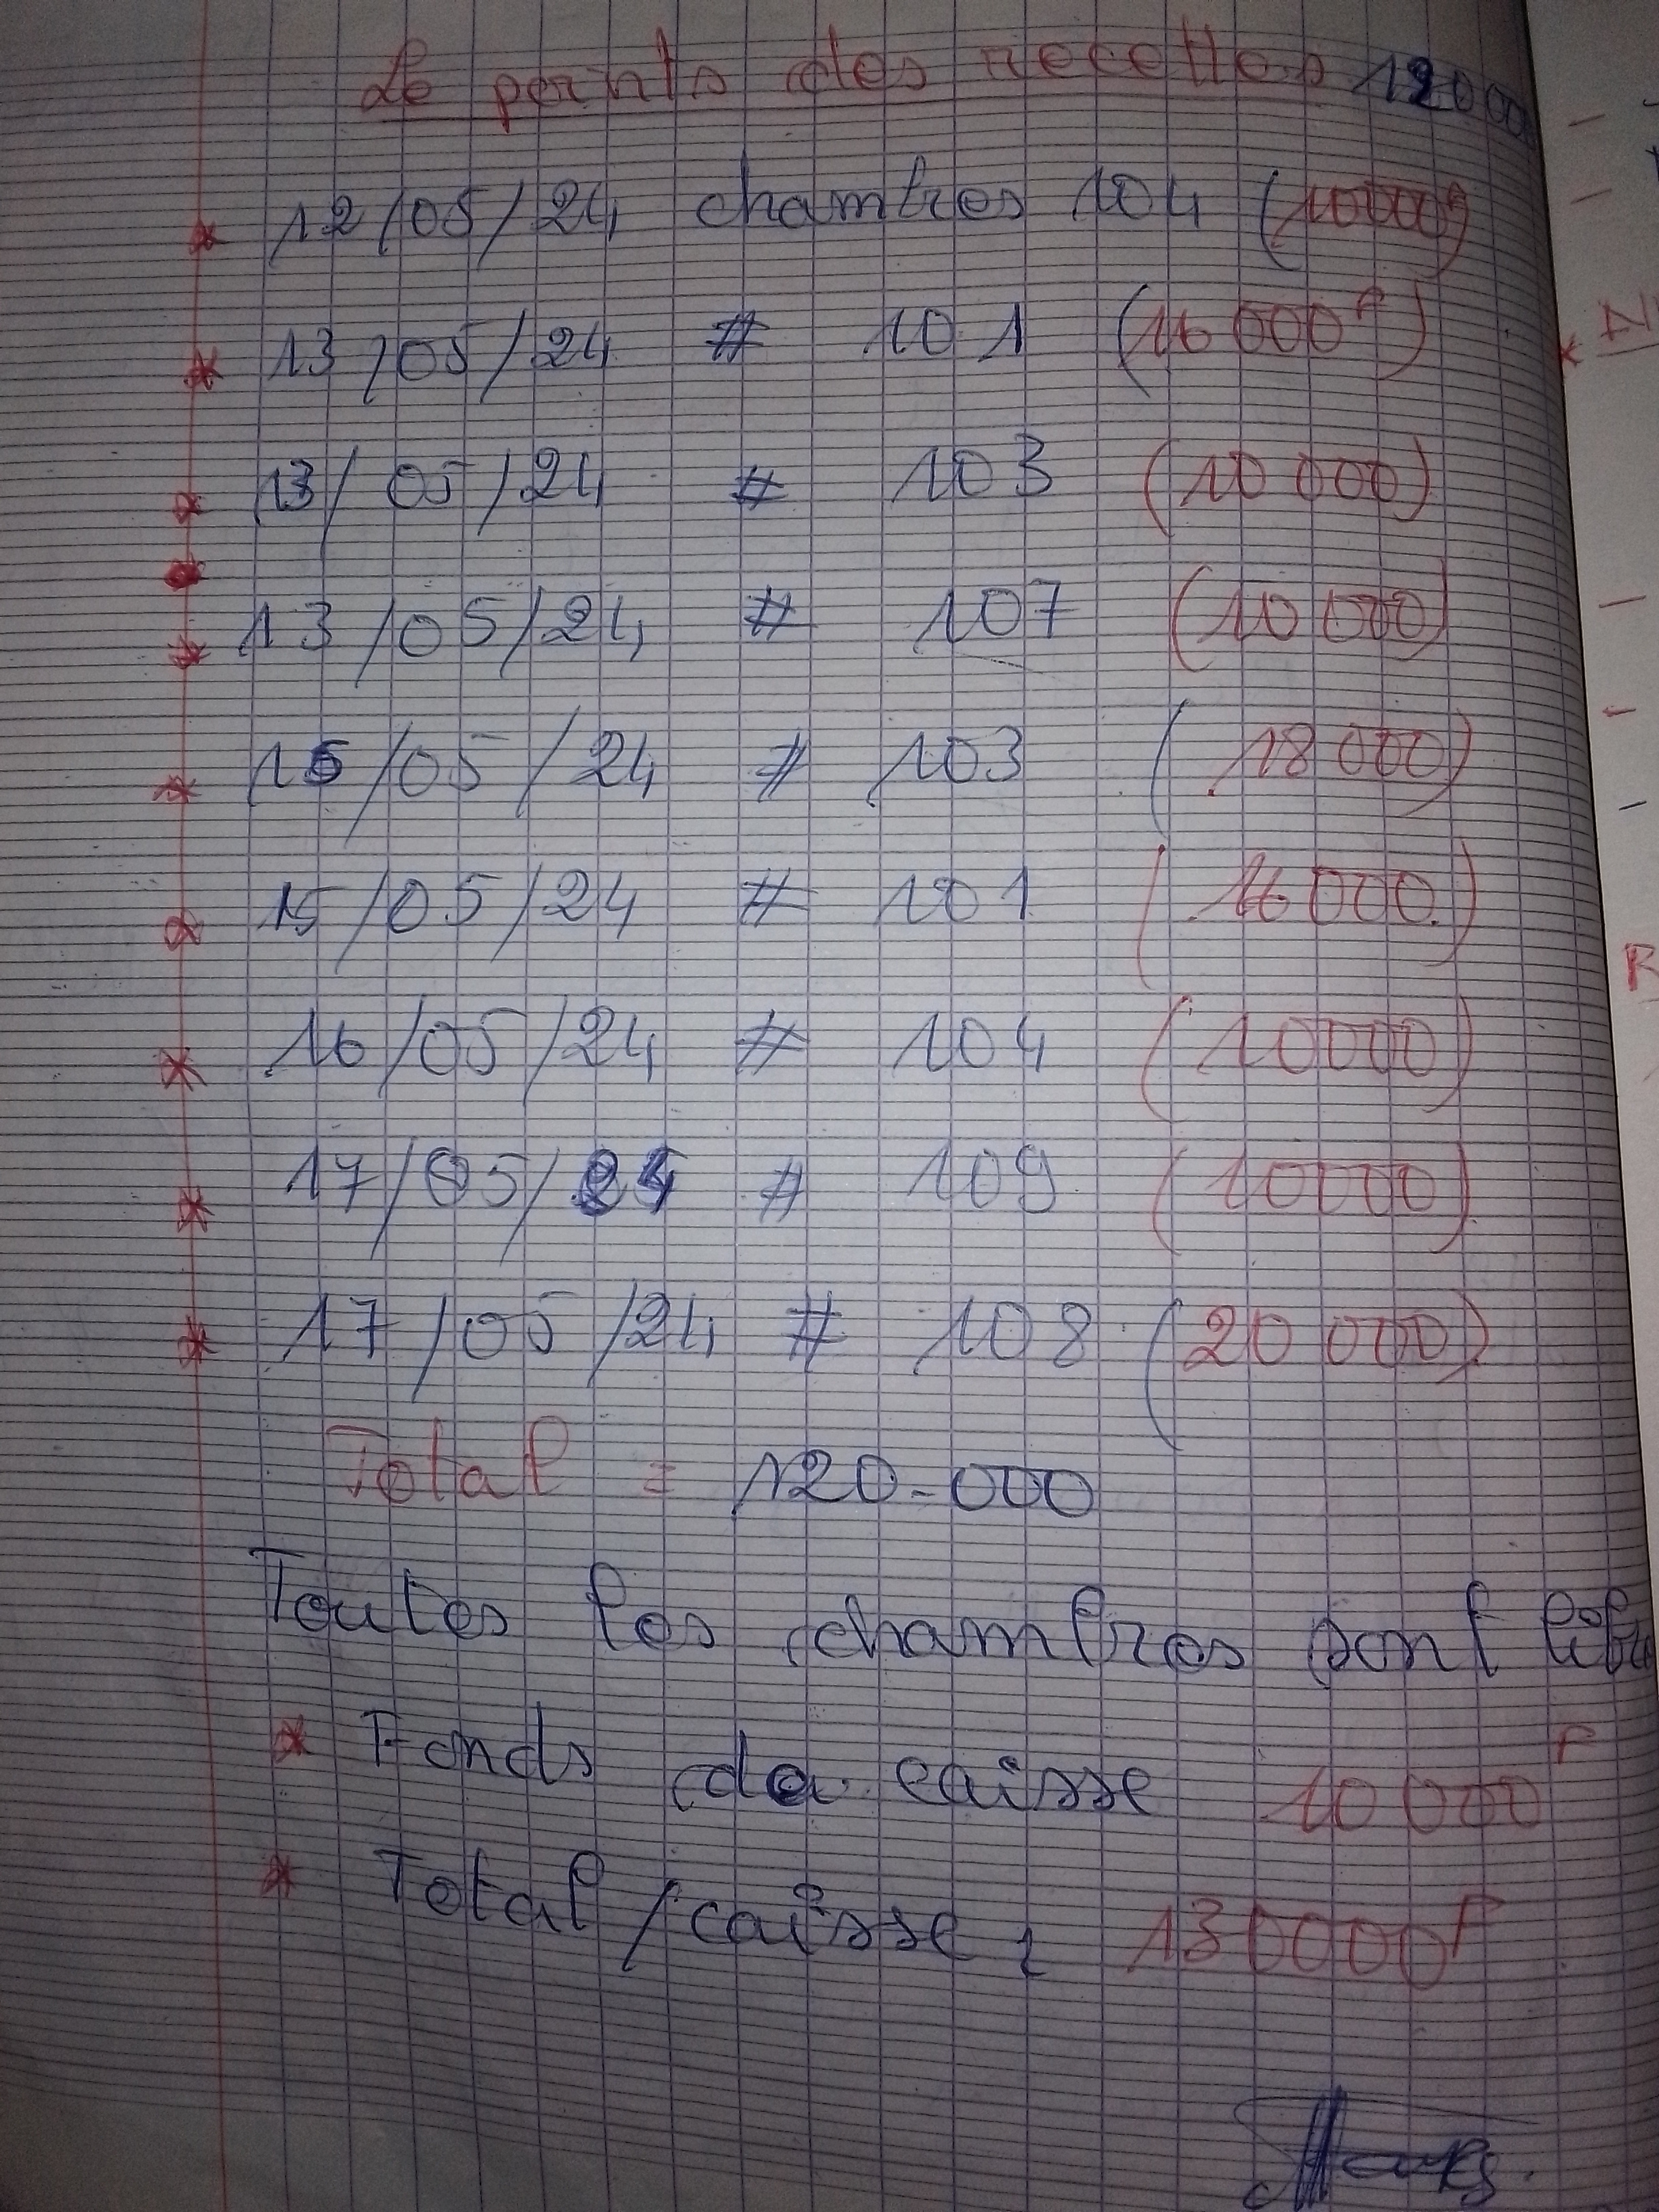 Le points des recettes 120 000
* 12/05/24 chambres 104 (10000f)
* 13/05/24 # 101 (16 000f)
* 13/05/24 # 103 (10 000)
* 13/05/24 # 107 (10 000)
* 15/05/24 # 103 (18 000)
* 15/05/24 # 101 (16 000)
* 16/05/24 # 104 (10000)
* 17/05/24 # 109 (10000)
* 17/05/24 # 108 (20 000)
Total = 120-000
Toutes les chambres sont
* Fonds de caisse 10 000F
* Total/caisse : 130000F